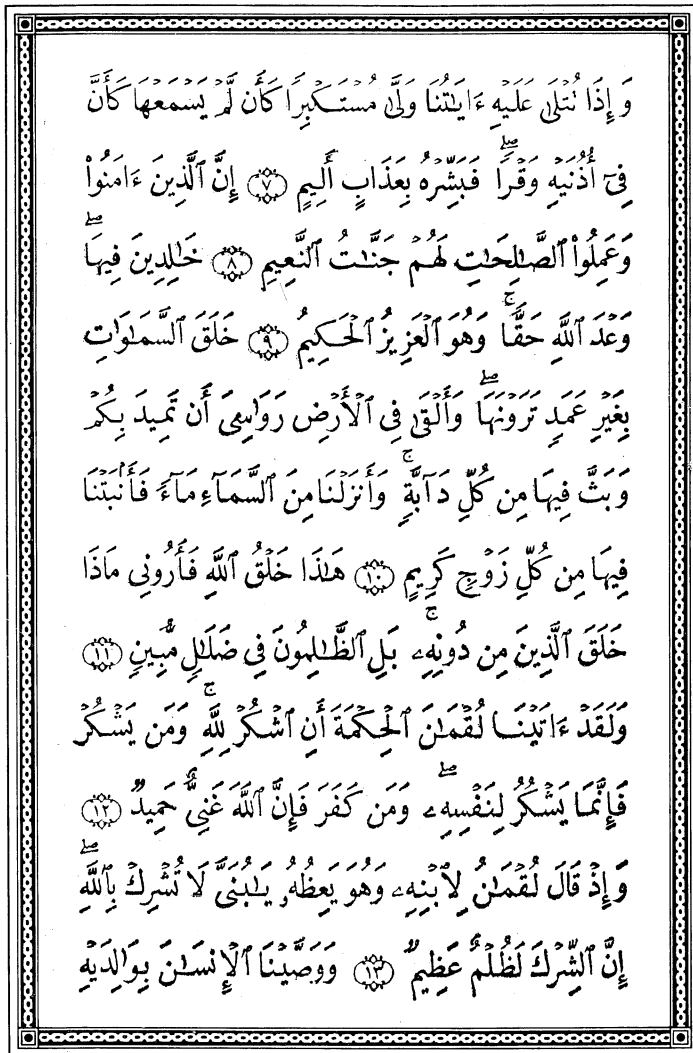 وَإِذَا تُتْلَىٰ عَلَيْهِ ءَايَٰتُنَا وَلَّىٰ مُسْتَكْبِرًا كَأَن لَّمْ يَسْمَعْهَا كَأَنَّ
فِىٓ أُذُنَيْهِ وَقْرًاۖ فَبَشِّرْهُ بِعَذَابٍ أَلِيمٍ ﴿٧﴾ إِنَّ ٱلَّذِينَ ءَامَنُوا۟
وَعَمِلُوا۟ ٱلصَّٰلِحَٰتِ لَهُمْ جَنَّٰتُ ٱلنَّعِيمِ ﴿٨﴾ خَٰلِدِينَ فِيهَاۖ
وَعْدَ ٱللَّهِ حَقًّاۚ وَهُوَ ٱلْعَزِيزُ ٱلْحَكِيمُ ﴿٩﴾ خَلَقَ ٱلسَّمَٰوَٰتِ
بِغَيْرِ عَمَدٍ تَرَوْنَهَاۖ وَأَلْقَىٰ فِى ٱلْأَرْضِ رَوَٰسِىَ أَن تَمِيدَ بِكُمْ
وَبَثَّ فِيهَا مِن كُلِّ دَآبَّةٍۚ وَأَنزَلْنَا مِنَ ٱلسَّمَآءِ مَآءً فَأَنۢبَتْنَا
فِيهَا مِن كُلِّ زَوْجٍ كَرِيمٍ ﴿١٠﴾ هَٰذَا خَلْقُ ٱللَّهِ فَأَرُونِى مَاذَا
خَلَقَ ٱلَّذِينَ مِن دُونِهِۦۚ بَلِ ٱلظَّٰلِمُونَ فِى ضَلَٰلٍ مُّبِينٍ ﴿١١﴾
وَلَقَدْ ءَاتَيْنَا لُقْمَٰنَ ٱلْحِكْمَةَ أَنِ ٱشْكُرْ لِلَّهِۚ وَمَن يَشْكُرْ
فَإِنَّمَا يَشْكُرُ لِنَفْسِهِۦۖ وَمَن كَفَرَ فَإِنَّ ٱللَّهَ غَنِىٌّ حَمِيدٌ ﴿١٢﴾
وَإِذْ قَالَ لُقْمَٰنُ لِٱبْنِهِۦ وَهُوَ يَعِظُهُۥ يَٰبُنَىَّ لَا تُشْرِكْ بِٱللَّهِۖ
إِنَّ ٱلشِّرْكَ لَظُلْمٌ عَظِيمٌ ﴿١٣﴾ وَوَصَّيْنَا ٱلْإِنسَٰنَ بِوَٰلِدَيْهِ